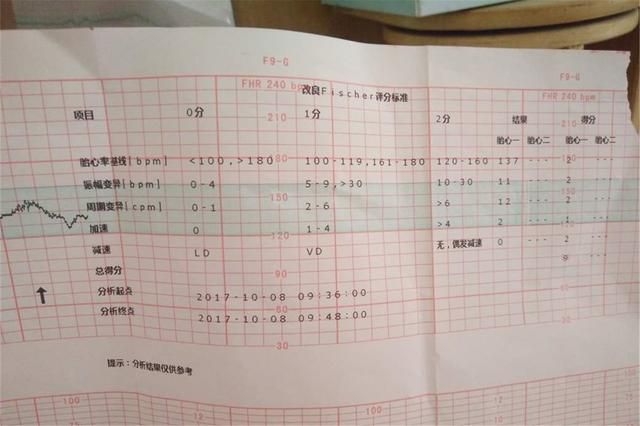 F9-G F9-G
FHR 240 bpm FHR 240 bpm
改良Fischer评分标准
项目 0分 1分 2分 结果 得分
胎心一 胎心二 胎心一 胎心二
胎心率基线[bpm] <100,>180 100-119,161-180 120-160 137 --- 2 ---
振幅变异[bpm] 0-4 5-9,>30 10-30 11 --- 2 ---
周期变异[cpm] 0-1 2-6 >6 12 --- 2 ---
加速 0 1-4 >4 2 --- 1 ---
减速 LD VD 无,偶发减速 0 --- 2 ---
总得分 9 ---
分析起点 2017-10-08 09:36:00
分析终点 2017-10-08 09:48:00
提示:分析结果仅供参考
210 210
180
150 150
120 120
90 90
60 60
30 30
100 12 100 12